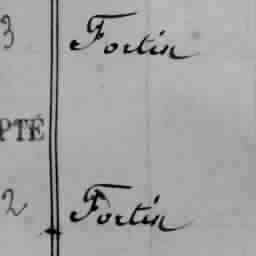 3 Fortin
PTÉ
2 Fortin